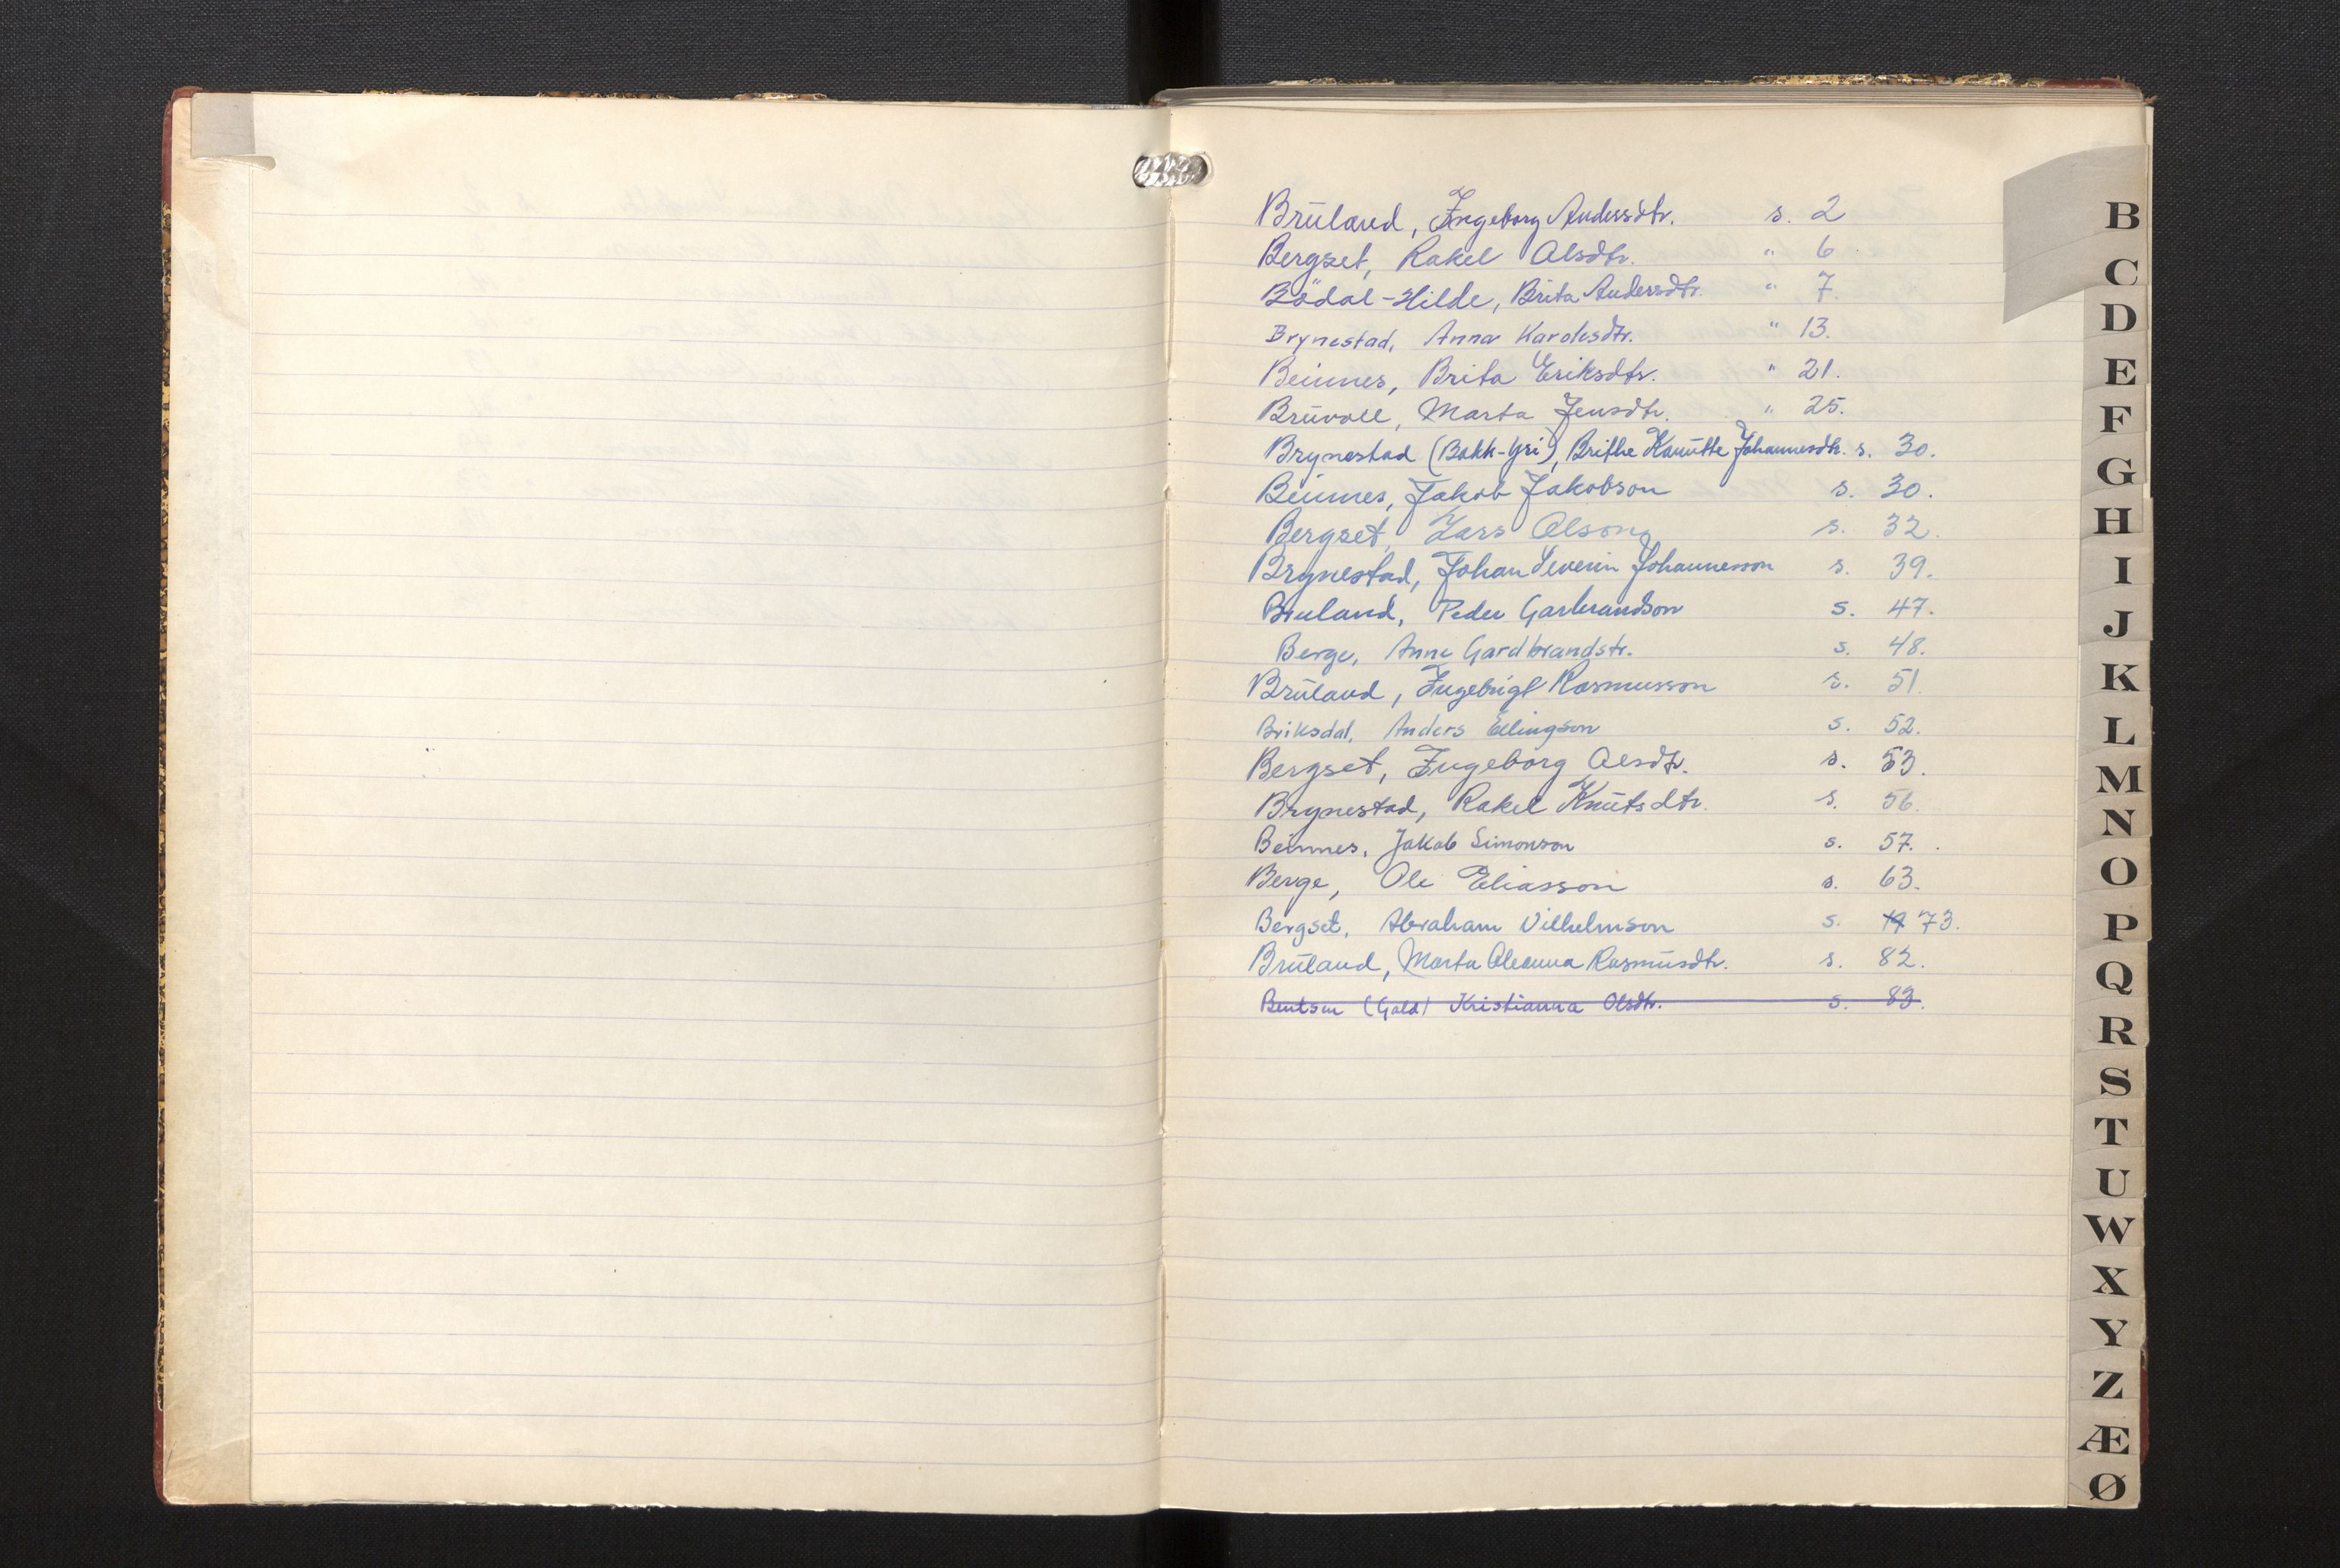 Brŭland, Ingeborg Andersdtr. s. 2
Bergset, Rakel Olsdtr. " 6
Bödal-Hilde, Brita Andersdtr. " 7.
Brynestad, Anna Karolusdtr. " 13.
Beinnes, Brita Eriksdtr. " 21.
Brŭvoll, Marta Jensdtr. " 25.
Brynestad (Bakk-Yri), Brithe Knŭtte Johannesdtr. s. 30.
Beinnes, Jakob Jakobson s. 30.
Bergset, Lars Olson s. 32.
Brynestad, Johan Severin Johannesson s. 39.
Bruland, Peder Garbrandson s. 47.
Berge, Anne Gardbrandstr. s. 48.
Brŭland, Ingebrigt Rasmusson s. 51.
Briksdal, Anders Ellingson s. 52.
Bergset, Ingeborg Olsdtr. s. 53.
Brynestad, Rakel Knŭtsdtr. s. 56.
Beinnes, Jakob Simonson s. 57.
Berge, Ole Eliasson s. 63.
Bergset, Abraham Vilhelmson s. 73.
Brŭland, Marta Oleanna Rasmŭsdtr. s. 82.
Bentsen (Gald) Kristianna Olsdtr. s. 83.
B
C
D
E
F
G
H
I
J
K
L
M
N
O
P
Q
R
S
T
U
W
X
Y
Z
Æ
Ø